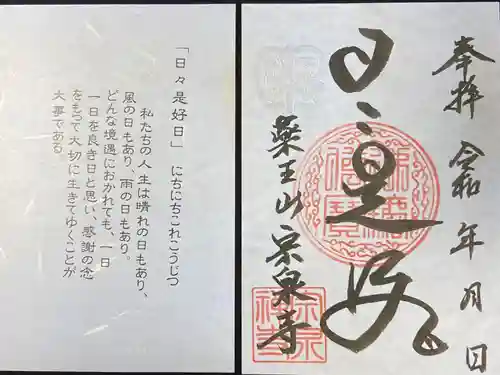 「日々是好日」 にちにちこれこうじつ
私たちの人生は晴れの日もあり、
風の日もあり、雨の日もあり。
どんな境遇におかれても、一日
一日を良き日と思い、感謝の念
をもって大切に生きてゆくことが
大事である。
奉拝 令和 年 月 日
日々是好日
薬王山 宗泉寺